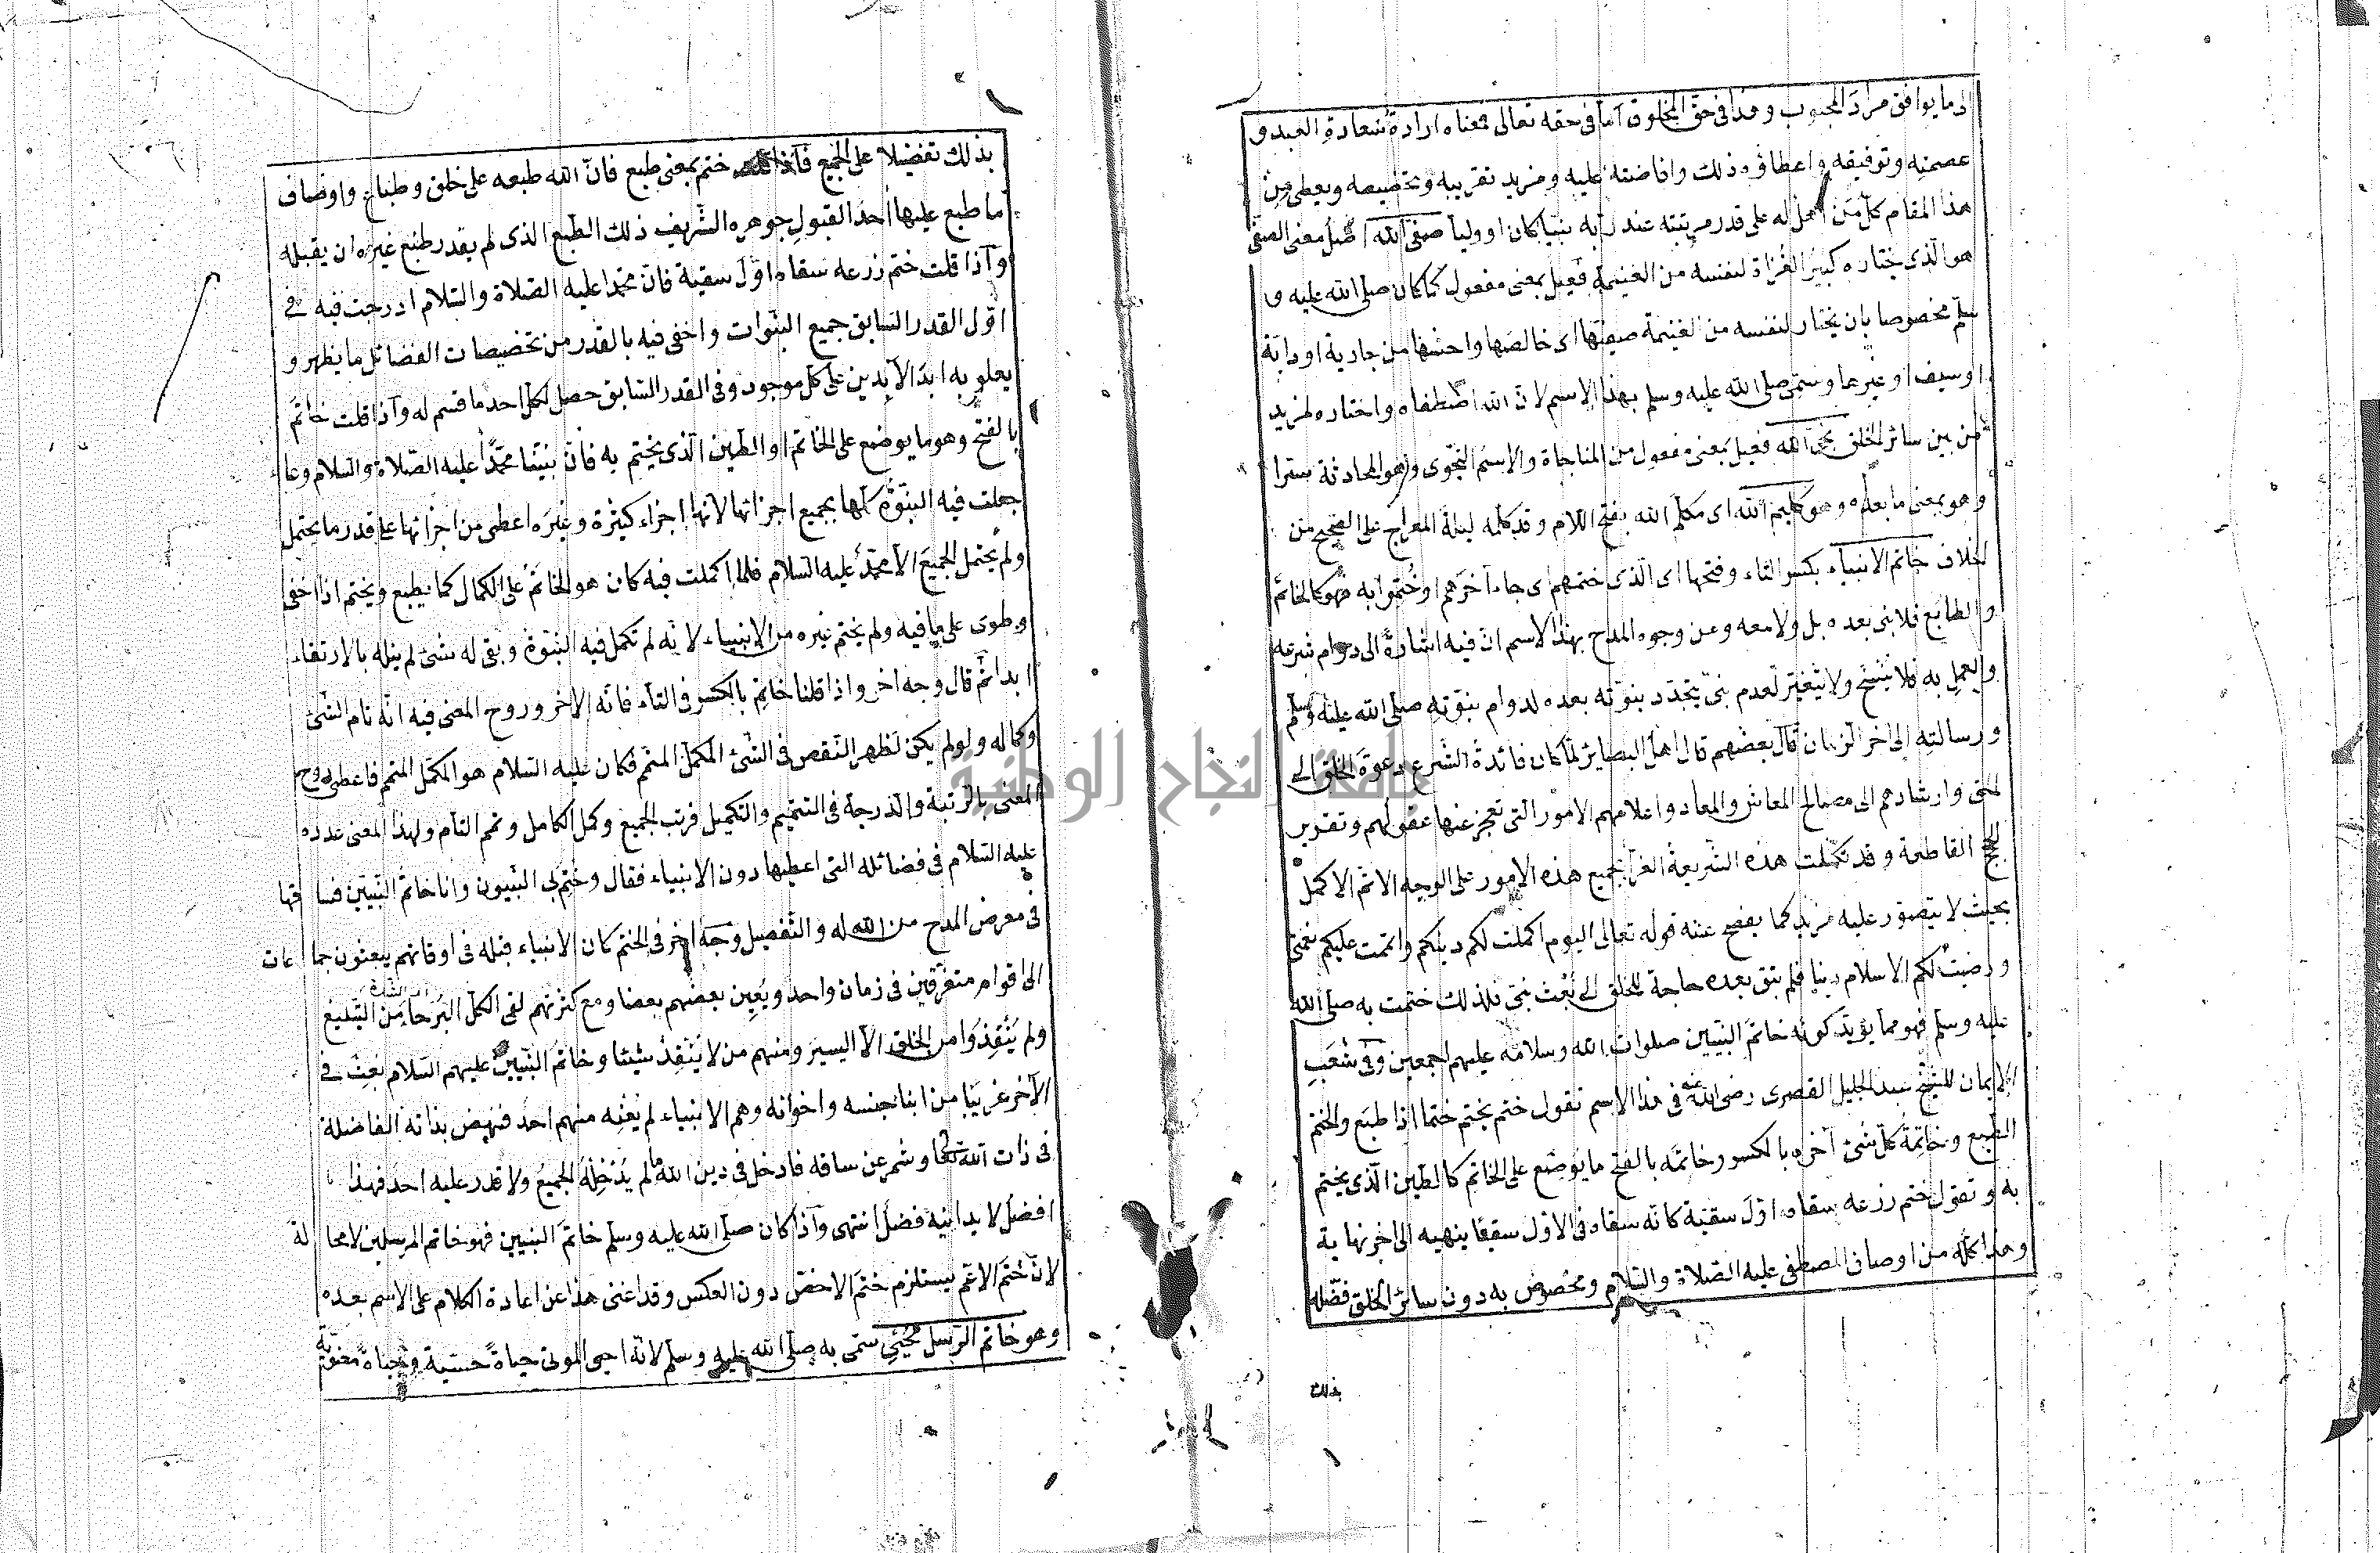 الى ما يوافق مراد المحبوب وهذا في حق المخلوق اما في حقه تعالى فمعناه ارادة سعادة العبد و
عصمته وتوفيقه واعطاؤه ذلك وافاضته عليه ومزيد تقريبه وتخصيصه ويعطى من
هذا المقام كل من اهل له على قدر مرتبته عند ربه نبيا كان او وليا صفى الله اصل معنى الصفى
هو الذى يختاره كبير الغزاة لنفسه من الغنيمة فعيل بمعنى مفعول كما كان صلى الله عليه و
سلم مخصوصا بان يختار لنفسه من الغنيمة صفيتها اى خالصها واحسنها من جارية او دابة
او سيف او غيرهما وسمى صلى الله عليه وسلم بهذا الاسم لان الله اصطفاه واختاره لمزيد
من بين سائر الخلق نجى الله فعيل بمعنى مفعول من المناجاة والاسم النجوى وهو المحادثة سرا
وهو بمعنى ما بعده وهو كليم الله اى مكلم الله بفتح اللام وقد كلمه ليلة المعراج على الصحيح من
الخلاف خاتم الانبياء بكسر التاء وفتحها اى الذى ختمهم اى جاء آخرهم او ختموا به فهو كالخاتم
والطابع فلا نبى بعده بل ولا معه ومن وجوه المدح بهذا الاسم ان فيه اشارة الى دوام شرعه
والعمل به فلا ينسخ ولا يتغير لعدم نبى يتجدد بنوته بعده لدوام نبوته صلى الله عليه وسلم
ورسالته الى اخر الزمان قال بعضهم قال اهل البصاير لما كان فائدة الشرع دعوة الخلق الى
الحق وارشادهم الى مصالح المعاش والمعاد واعلامهم الامور التى تعجز عنها عقولهم وتقرير
الحجج القاطعة وقد تكملت هذه الشريعة الغرا بجميع هذه الامور على الوجه الاتم الاكمل
بحيث لا يتصور عليه مزيد كما يفصح عنه قوله تعالى اليوم اكملت لكم دينكم واتممت عليكم نعمتى
ورضيت لكم الاسلام دينا فلم يبق بعده حاجة للخلق الى بعث نبى فلذلك ختمت به صلى الله
عليه وسلم فهو مما يؤيد كونه خاتم النبيين صلوات الله وسلامه عليهم اجمعين وفى شعب
الايمان للشيخ عبد الجليل القصرى رضى الله عنه فى هذا الاسم تقول ختم يختم ختما اذا طبع والختم
الطبع وخاتمة كل شئ آخره بالكسر وخاتمه بالفتح ما يوضع على الخاتم كالطين الذى يختم
به وتقول ختم زرعه سقاه اول سقية كانه سقاه فى الاول سقيا ينهيه الى اخر نهاية
وهذا كله من اوصاف المصطفى عليه الصلاة والسلام ومخصوص به دون سائر الخلق فضله
بذلك
بذلك تفضيلا على الجميع فاذا قلت ختم بمعنى طبع فان الله طبعه على خلق وطباع واوصاف
ما طبع عليها احد القبول جوهره الشريف ذلك الطبع الذى لم يقدر طبع غيره ان يقبله
واذا قلت ختم زرعه سقاه اول سقية فان محمدا عليه الصلاة والسلام ادرجت فيه فى
اول القدر السابق جميع النبوات واخفى فيه بالقدر من تخصيصات الفضائل ما يظهر و
يعلو به ابد الآبدين على كل موجود وفى القدر السابق حصل لكل احد ما قسم له واذا قلت خاتم
بالفتح وهو ما يوضع على الخاتم او الطين الذى يختم به فان نبينا محمدا عليه الصلاة والسلام وعا
جعلت فيه النبوة كلها بجميع اجزائها لانها اجزاء كثيرة وغيره اعطى من اجزائها على قدر ما يحتمل
ولم يحتمل الجميع الا محمد عليه السلام فلما كملت فيه كان هو الخاتم على الكمال كما يطبع ويختم اذا اخفى
وطوى على ما فيه ولم يختم غيره من الانبياء لانه لم تكمل فيه النبوة وبقى له شئ لم ينله بالارتقاء
ابدا ثم قال وجه اخر واذا قلنا خاتم بالكسر فى التاء فانه الاخر وروح المعنى فيه انه تام الشئ
وكماله ولو لم يكن لظهر النقص فى الشئ المكمل المتمم فكان عليه السلام هو المكمل المتمم فاعطى روح
المعنى بالرتبة والدرجة فى التتميم والتكميل فرتب الجميع وكمل الكامل وتمم التام ولهذا المعنى عدده
عليه السلام فى فضائله التى اعطيها دون الانبياء فقال وختم بى النبيون وانا خاتم النبيين فساقها
فى معرض المدح من الله له والتفصيل وجه اخر فى الختم كان الانبياء قبله فى اوقاتهم يبعثون جماعات
الى اقوام متفرقين فى زمان واحد ويعين بعضهم بعضا ومع كثرتهم لقى الكل البرحا من التبليغ
ولم ينقذوا من الخلق الا اليسير ومنهم من لا ينقذ شيئا وخاتم النبيين عليهم السلام بعث فى
الآخر غريبا من ابنا جنسه واخوانه وهم الانبياء لم يعنه منهم احد فنهض بذاته الفاضلة
فى ذات الله وشمر عن ساقه فادخل فى دين الله ما لم يدخله الجميع ولا قدر عليه احد فهذا
افضل لا يدانيه فضل انتهى واذا كان صلى الله عليه وسلم خاتم النبيين فهو خاتم المرسلين لا محالة
لان ختم الاعم يستلزم ختم الاخص دون العكس وقد اغنى هذا عن اعادة الكلام على الاسم بعده
وهو خاتم الرسل محيى سمى به صلى الله عليه وسلم لانه احيى الموتى حياة حسية وحياة معنوية
جامعة النجاح الوطنية